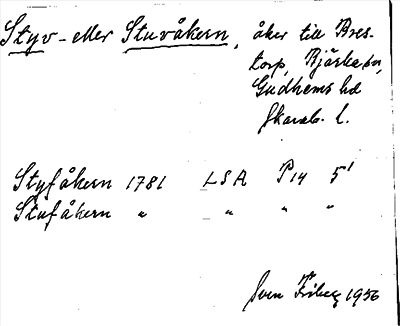 Styv- eller Stuvåkern, åker till Bres-
torp, Bjärka sn,
Gudhems hd
Skarab. l.
Styfåkern 1781 LSA P14 5¹
Stufåkern " " " "
Sven Friberg 1956